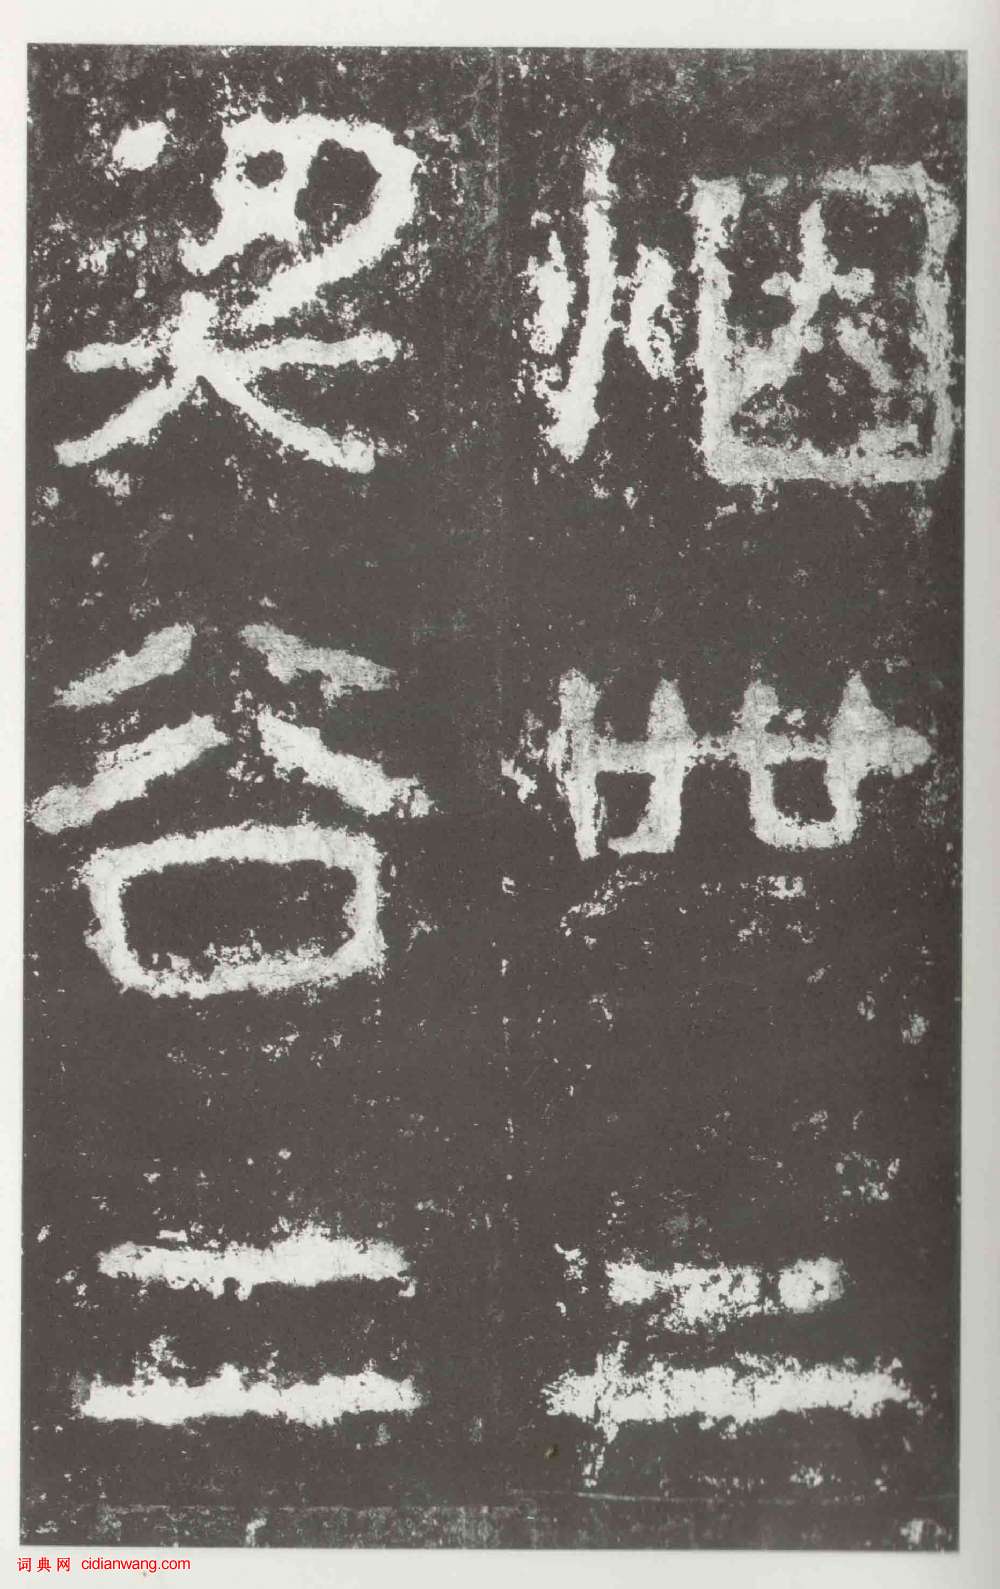 烟卌二
梁谷二
词典网 cidianwang.com